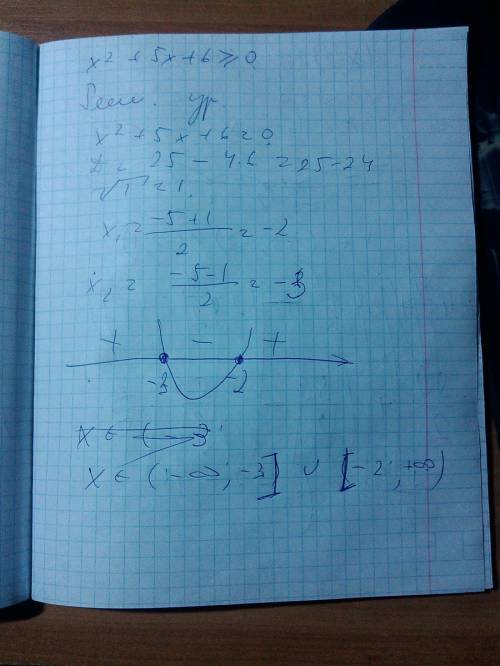 x² + 5x + 6 ≥ 0
Реш. ур.
x² + 5x + 6 = 0
D = 25 - 4·6 = 25 - 24
√1 = 1.
x₁ = (-5+1)/2 = -2
x₂ = (-5-1)/2 = -3
+ - +
-3 -2
x ∈ (-3
x ∈ (-∞; -3] ∪ [-2; +∞)